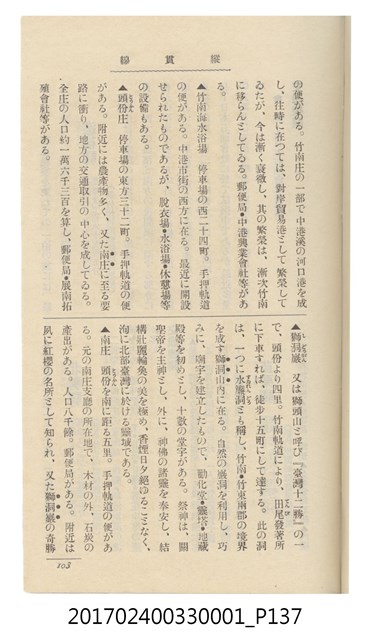 縱貫線
の便がある。竹南庄の一部で中港溪の河口港を成
し、往時に在つては、對岸貿易港として繁榮して
ゐたが、今は漸く衰微し、其の繁榮は、漸次竹南
に移らんとしてゐる。郵便局・中港興業會社等があ
る。
▲竹南海水浴場　停車場の西二十四町。手押軌道
の便がある。中港市街の西方に在る。最近に開設
せられたものであるが、脫衣場・水浴場・休憩場等
の設備もある。
▲頭份庄　停車場の東方三十二町。手押軌道の便
がある。附近には農產物多く、又た南庄に至る要
路に衝り、地方の交通取引の中心を成してゐる。
全庄の人口約一萬六千三百を算し、郵便局・展南拓
殖會社等がある。
▲獅洞巖　又は獅頭山と呼び『臺灣十二勝』の一
で、頭份より四里。竹南軌道により、田尾發著所
に下車すれば、徒步十五町にして達する。此の洞
は、一つに水簾洞とも稱し、竹南・竹東兩郡の境界
を成す獅洞山内に在る。自然の巖洞を利用し、巧
みに、廟宇を建立したもので、勸化堂・靈塔・地藏
殿等を初めとし、十數の堂宇がある。祭神は、關
聖帝を主神とし、外に、神佛の諸靈を奉安し、結
構壯麗輪奐の美を極め、香煙日夕絕ゆることなく、
洵に北部臺灣に於ける靈域である。
▲南庄　頭份を南に距る五里。手押軌道の便があ
る。元の南庄支廳の所在地で、木材の外、石炭の
產出がある。人口八千餘。郵便局がある。附近は
夙に紅櫻の名所として知られ、又た獅洞巖の奇勝
103
201702400330001_P137